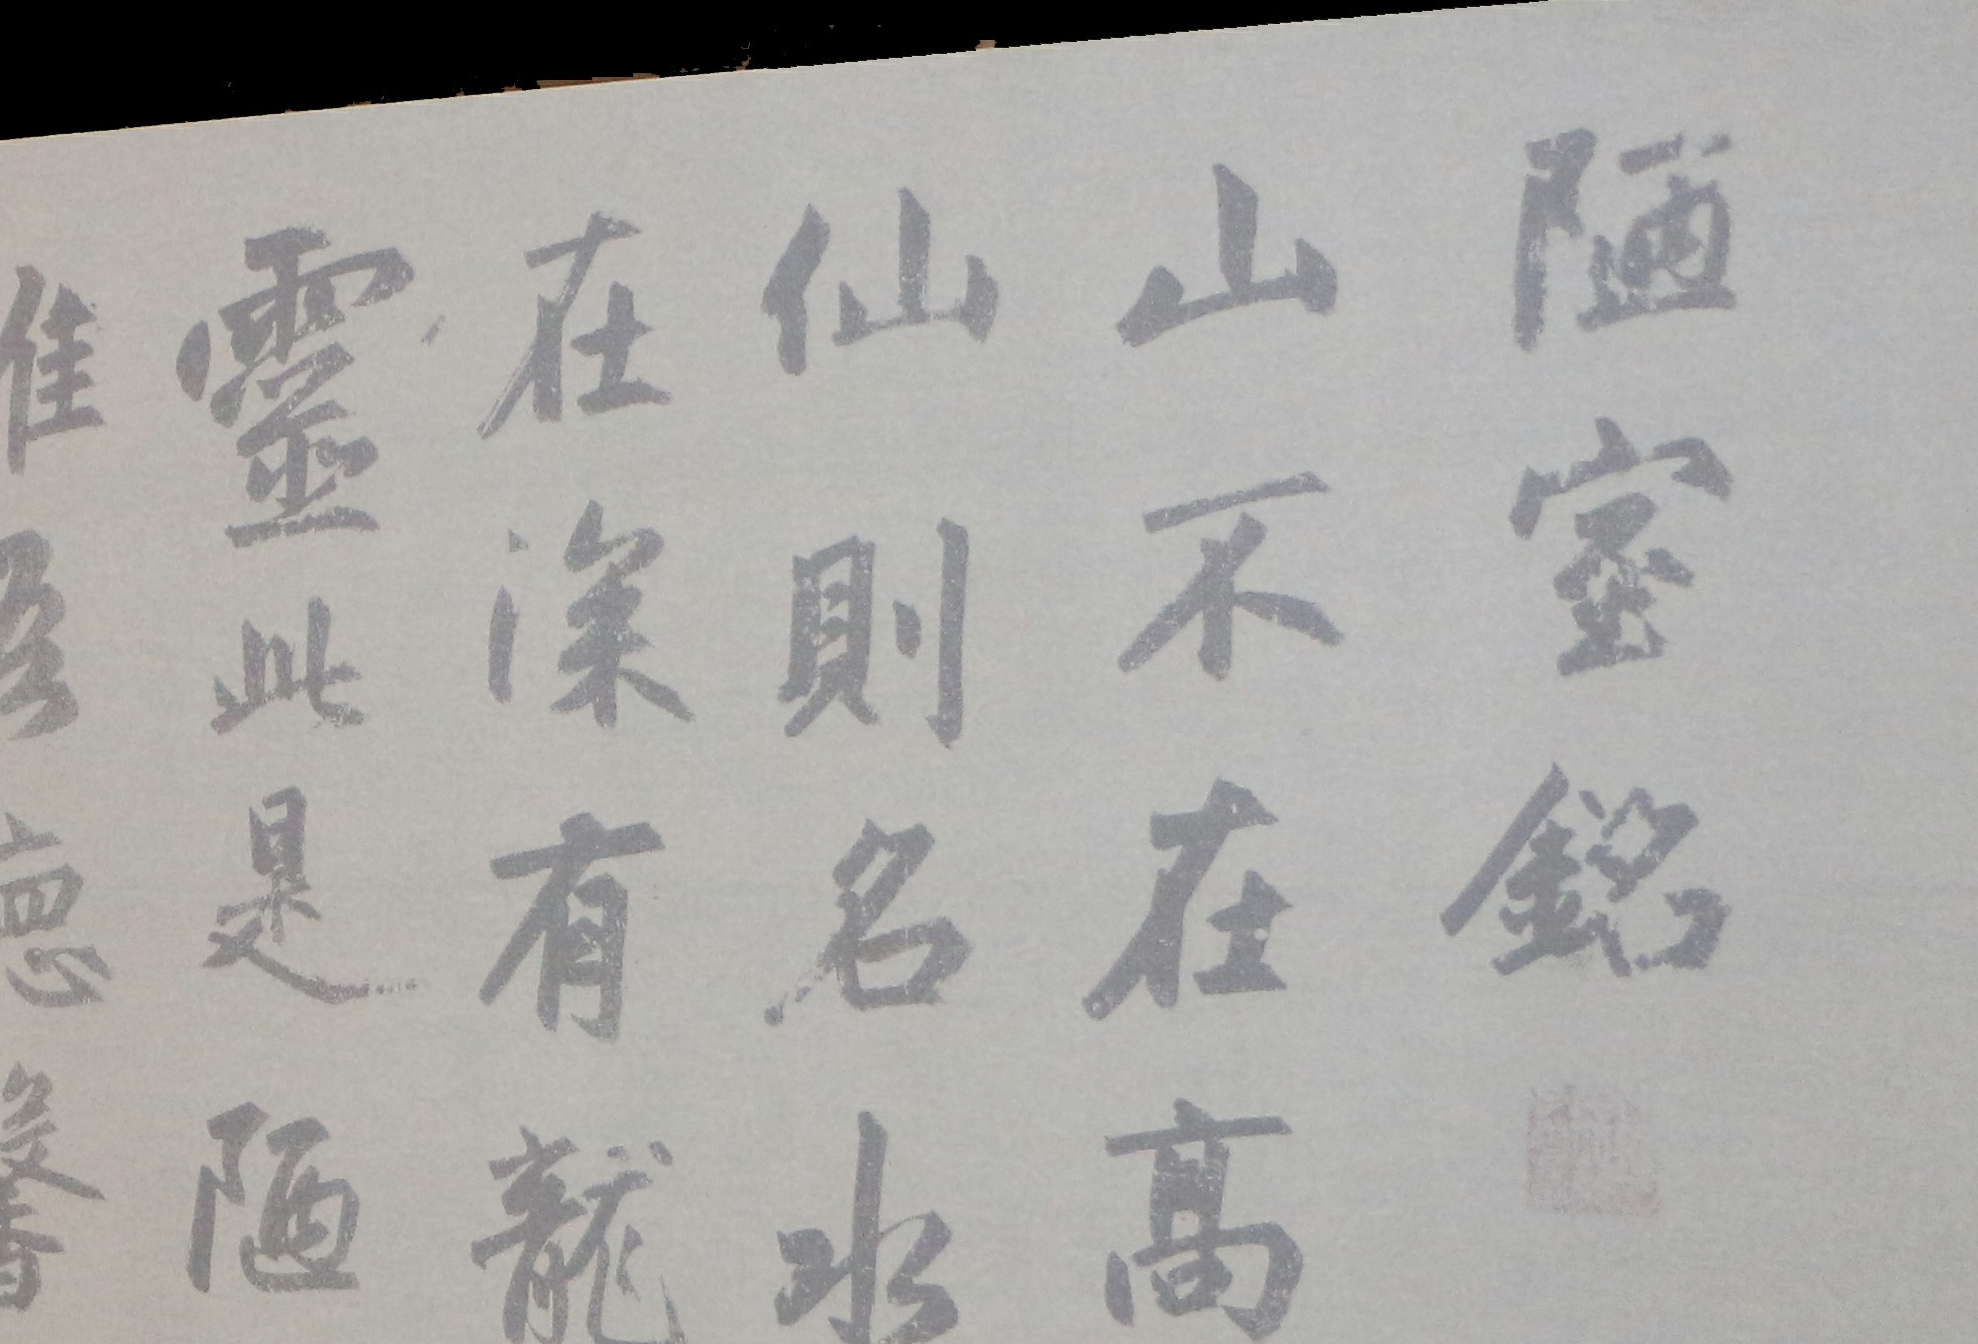 陋室銘
山不在高
仙則名水
在深有龍
靈此是陋
惟吾德馨